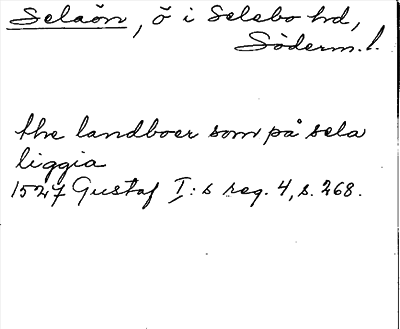 Selaön, ö i Selebo hd,
Söderm. l.
the landboer som på sela
liggia
1527 Gustaf I:s reg. 4, s. 268.